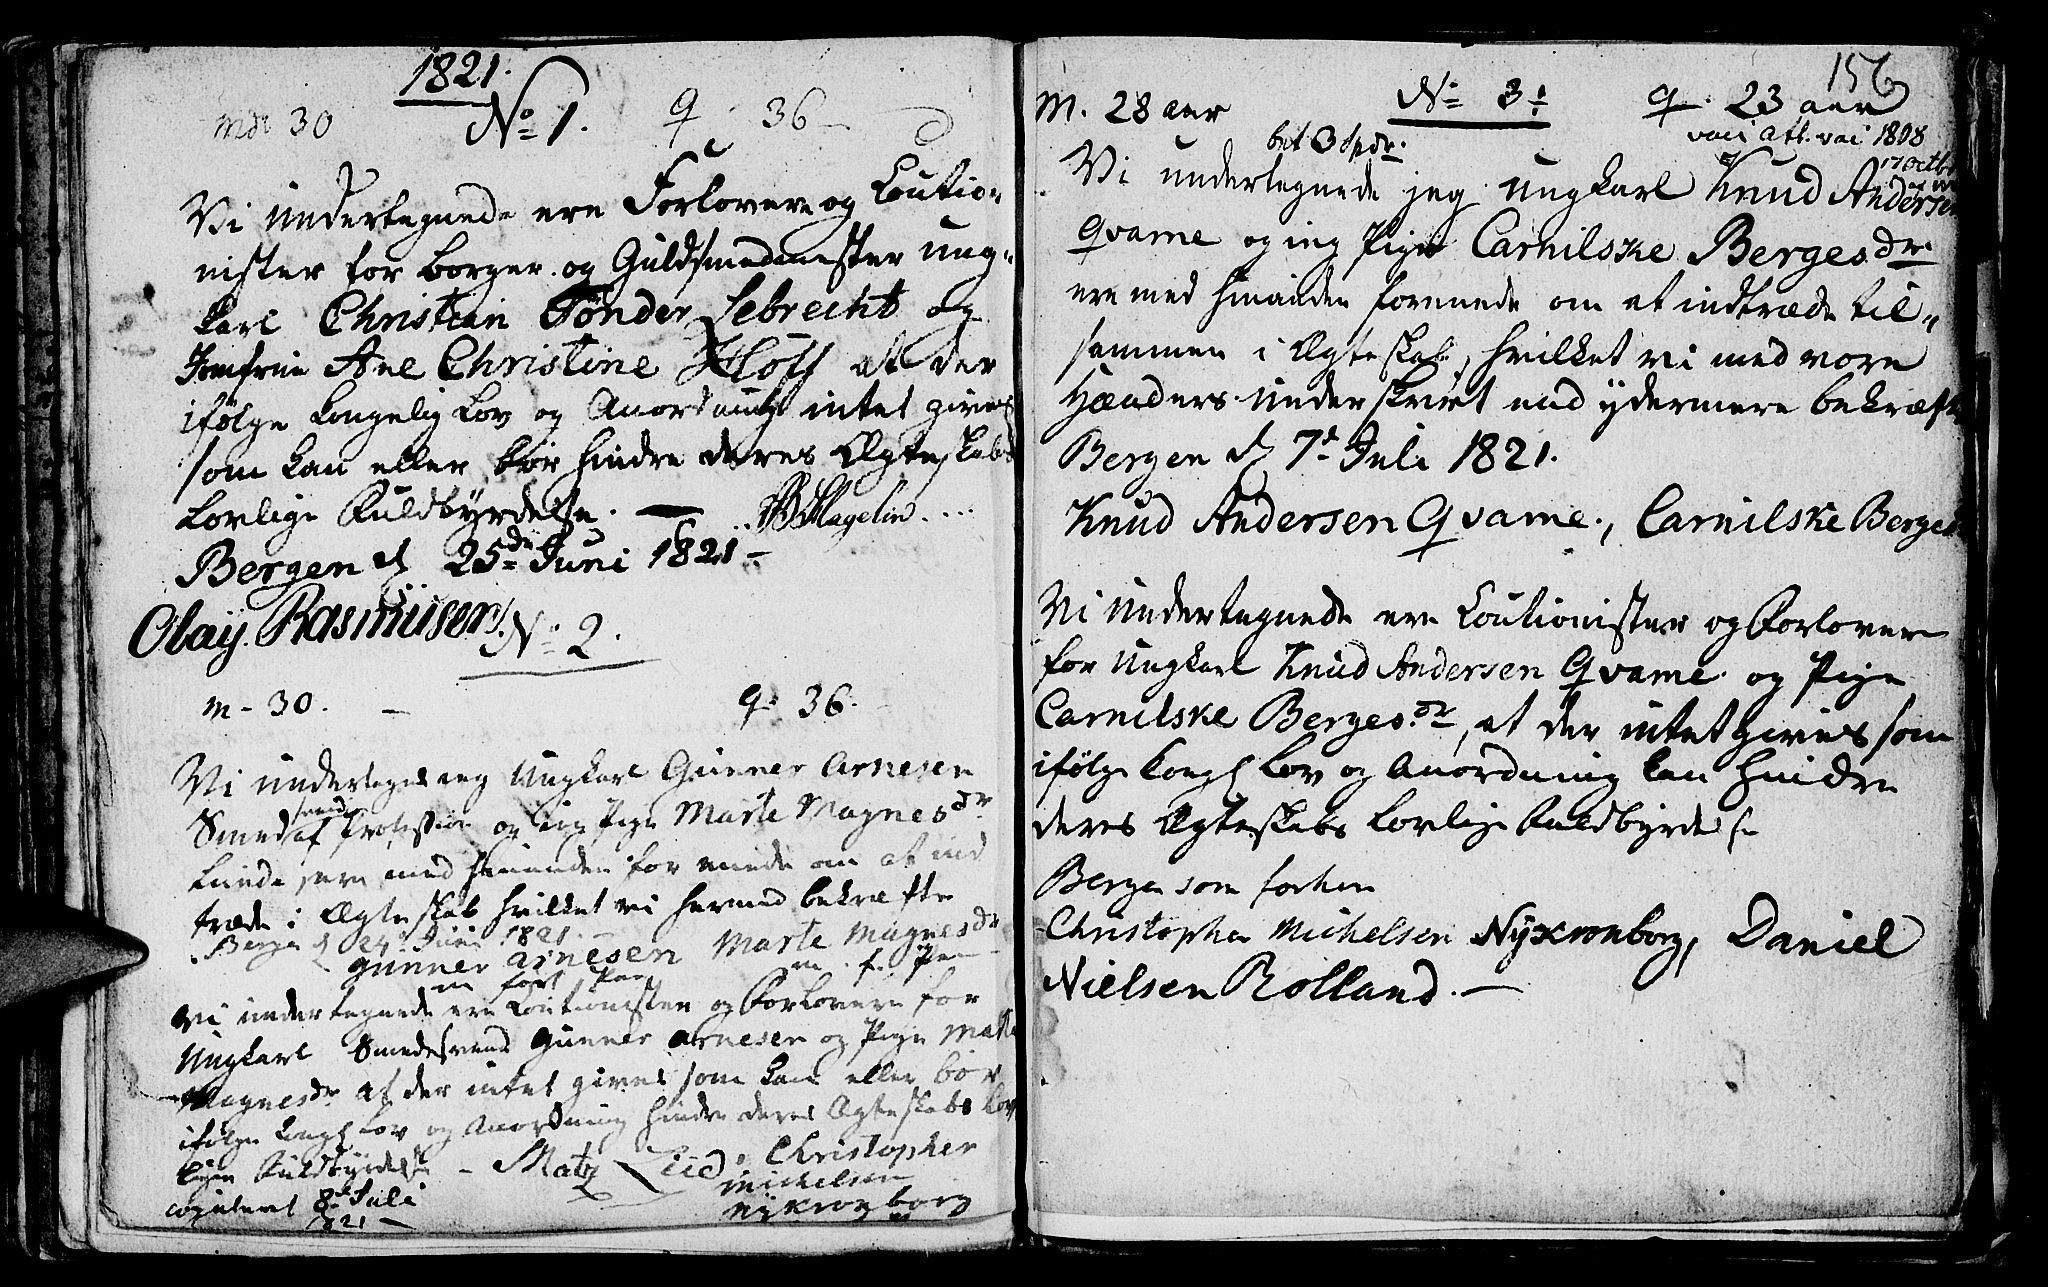 1821.
No 1.
mdr 30 q 36
Vi undertegnede ere Forlovere og Coutio-
nister for borger og Guldsmedmester ung-
karl Christian Tönder Sebrecht og
Jomfrue Ane Christine Höll at der
ifölge kongelig Lov og Anordning intet gives
som kan eller bör hindre deres Ægteskabs
Lovlige Fuldbyrdelse. — Hagelin
Bergen d 25de Juni 1821 —
Olay Rasmusen
No 2.
m - 30. q 36.
Vi undertegned jeg Ungkarl Gunner Arnesen
Smedsvend af Profession og jeg Pige Marte Magnesdr
Lunde, ere med hinanden forenede om at ind
træde i Ægteskab hvilket vi hermed bekræfte
Bergen d 24d Juni 1821. —
Gunner Arnesen Marte Magnesdr
m. fort Pen m. f. Pen
Vi undertegnede ere Coutionister og Forlovere for
Ungkarl Smedesvend Gunner Arnesen og Pige Marte
Magnesdr at der intet gives som kan eller bör
ifölge kongl Lov og Anordning hindre deres Ægteskabs Lov
lige Fuldbyrdelse — Matz Liid, Christopher
Michelsen
Nykronborg
copuleret 8de Juli
1821 —
156
M. 28 aar No 3: q. 23 aar
bet 3 spdr. 1808
17 Octbr
Vi undertegnede jeg Ungkarl Knud Andersen
Qvame og jeg Pige Carnilske Bergesdr.
ere med hinanden forenede om at indtræde til-
sammen i Ægteskab, hvilket vi med vore
Hænders Underskrivt end ydermere bekræfte
Bergen d 7d Juli 1821.
Knud Andersen Qvame., Carnilske Berges
Vi undertegnede ere Coutionister og Forlovere
for Ungkarl Knud Andersen Qvame og Pige
Carnilske Bergesdr, at der intet gives som
ifölge kongl Lov og Anordning kan hindre
deres Ægteskabs Lovlige Fuldbyrdelse
Bergen som forhen
Christopher Michelsen Nykronborg, Daniel
Nielsen Rolland. —